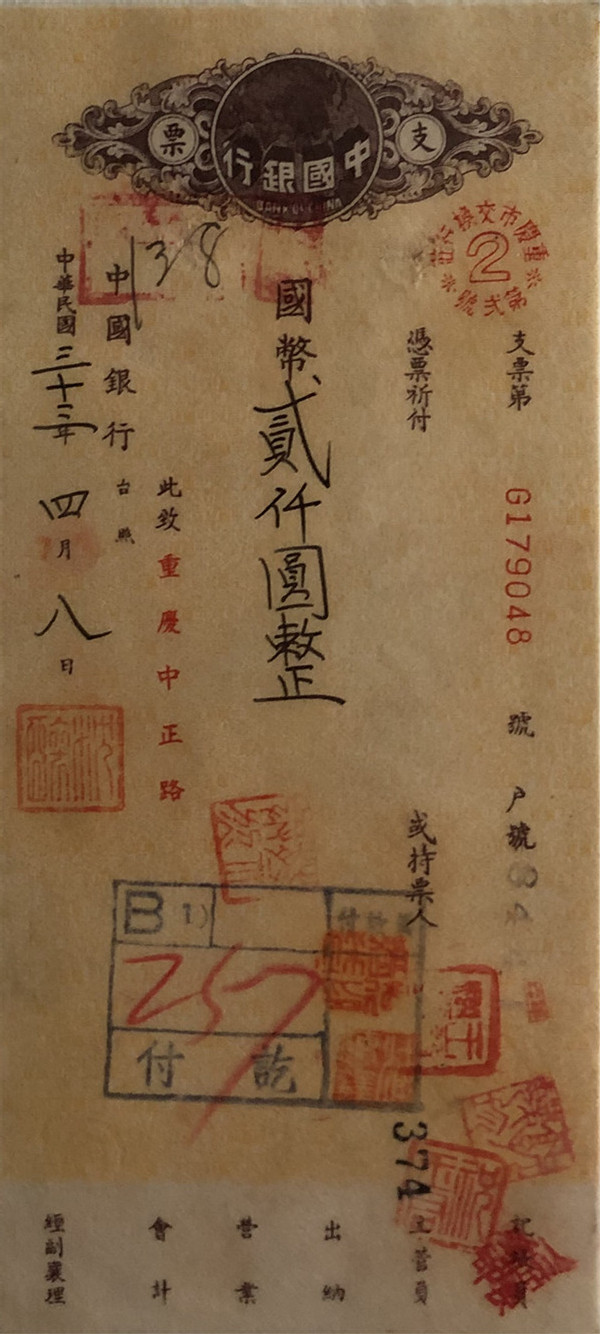 支票
中國銀行
BANK OF CHINA
重慶市交換行莊
2
第弍號
支票第 G179048 號 戶號
憑票祈付 或持票人
國幣貳仟圓整
此致重慶中正路
中國銀行 台照
138
中華民國三十三年四月八日
B 1)
257
付訖
374
記帳員
主管員
出納
營業
會計
經副襄理